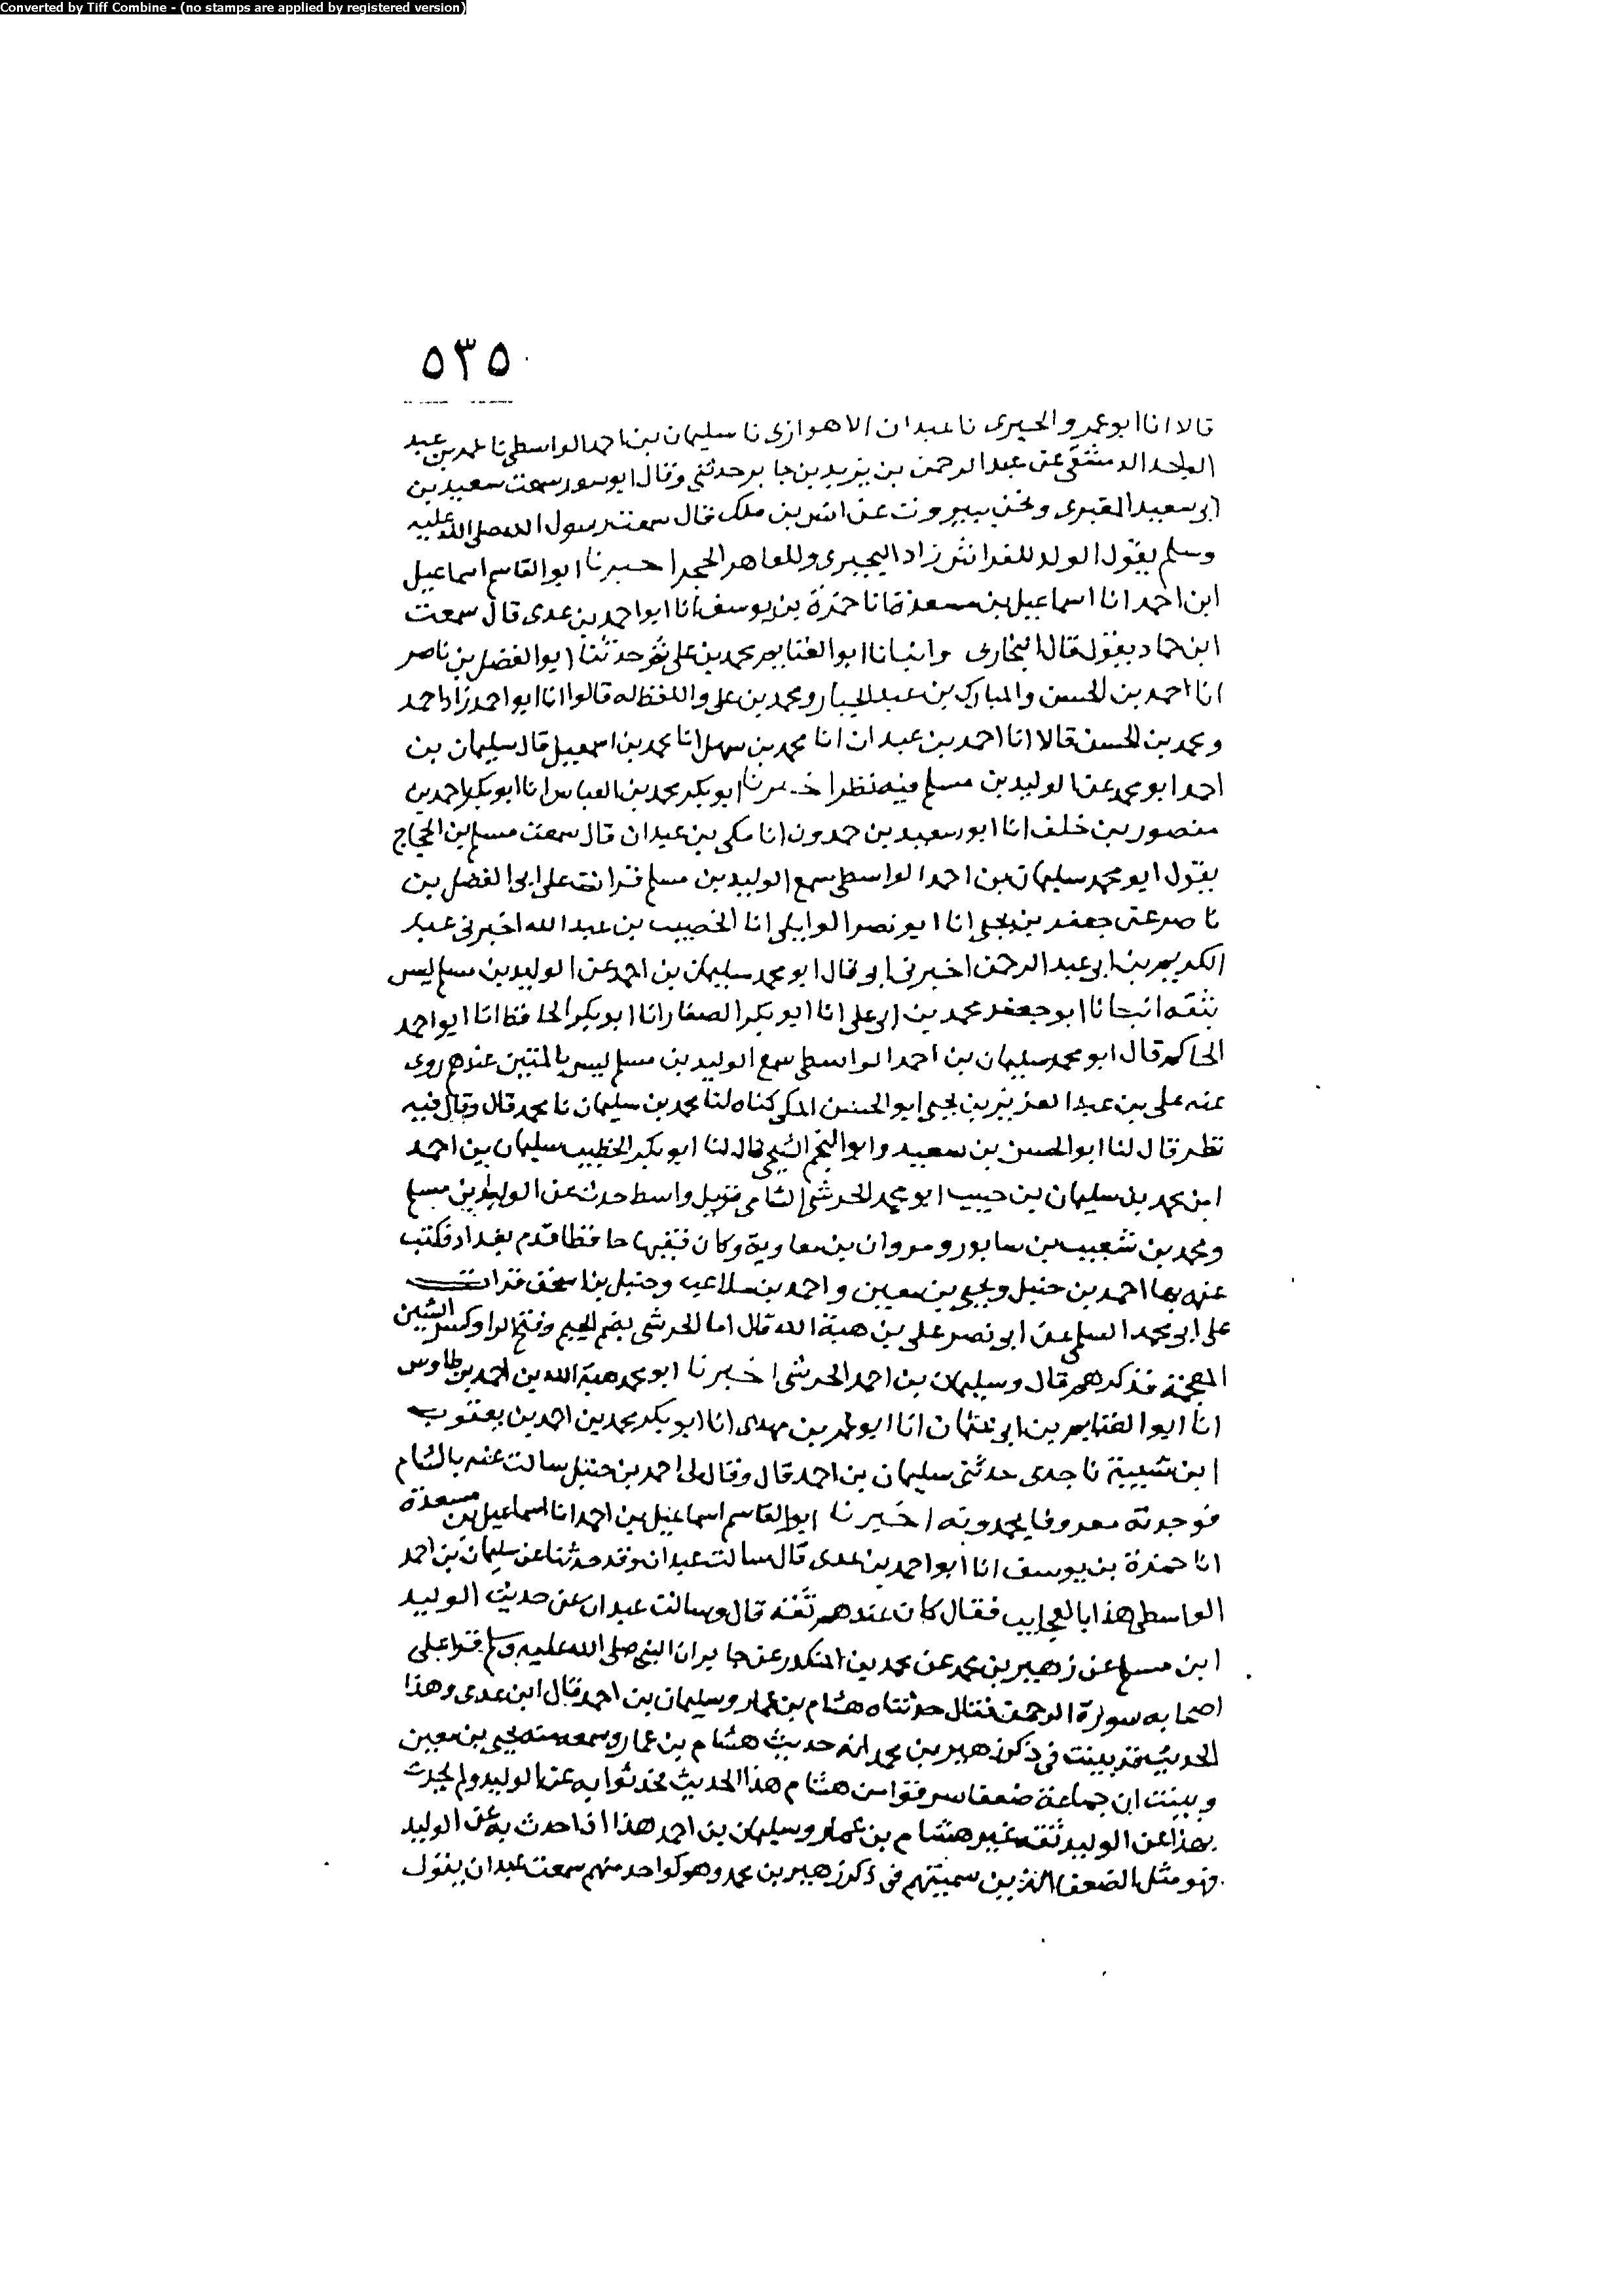 Converted by Tiff Combine - (no stamps are applied by registered version)
٥٣٥
قالا انا ابو عمرو الحيرى نا عبدان الاهوازى نا سليمان بن احمد الواسطى نا عمر بن عبد
الواحد الدمشقى عن عبد الرحمن بن يزيد بن جابر حدثنى وقال ابو سور سمعت سعيد بن
ابى سعيد المقبرى ونحن ببيروت عن انس بن ملك قال سمعت رسول الله صلى الله عليه
وسلم يقول الولد للفراش زاد البحيرى وللعاهر الحجر اخبرنا ابو القاسم اسماعيل
ابن احمد انا اسماعيل بن مسعدة انا حمزة بن يوسف انا ابو احمد بن عدى قال سمعت
ابن حماد يقول قال البخارى وانبانا ابو الغنايم محمد بن على ثم حدثنا ابو الفضل بن ناصر
انا احمد بن الحسن والمبارك بن عبد الجبار ومحمد بن على واللفظ له قالوا انا ابو احمد زاد احمد
ومحمد بن الحسن قالا انا احمد بن عبدان انا محمد بن سهل انا محمد بن اسمعيل قال سليمان بن
احمد ابو محمد عن الوليد بن مسلم فيه نظر اخبرنا ابو بكر محمد بن العباس انا ابو بكر احمد بن
منصور بن خلف انا ابو سعيد بن حمدون انا مكى بن عبدان قال سمعت مسلم بن الحجاج
يقول ابو محمد سليمان بن احمد الواسطى سمع الوليد بن مسلم قرات على ابى الفضل بن
ناصر عن جعفر بن يحيى انا ابو نصر الوايلى انا الخصيب بن عبد الله اخبرنى عبد
الكريم بن ابى عبد الرحمن اخبرنى ابى قال ابو محمد سليمان بن احمد عن الوليد بن مسلم ليس
بثقه انبانا ابو جعفر محمد بن ابى على انا ابو بكر الصفار انا ابو بكر الحافظ انا ابو احمد
الحاكم قال ابو محمد سليمان بن احمد الواسطى سمع الوليد بن مسلم ليس بالمتين عندهم روى
عنه على بن عبد العزيز بن يحيى ابو الحسن المكى كناه لنا محمد بن سليمان نا محمد قال وقال فيه
نظر قال لنا ابو الحسن بن سعيد وابو النجم الشيحى قال لنا ابو بكر الخطيب سليمان بن احمد
ابن محمد بن سليمان بن حبيب ابو محمد الجرشى الشامى نزيل واسط حدث عن الوليد بن مسلم
ومحمد بن شعيب بن سابور ومروان بن معاوية وكان فقيها حافظا قدم بغداد فكتب
عنه بها احمد بن حنبل ويحيى بن معين واحمد بن ملاعب وحنبل بن اسحق قرات
على ابى محمد السلمى عن ابى نصر على بن هبة الله قال اما الجرشى بضم الجيم وفتح الرا وكسر الشين
المعجمة فذكرهم قال وسليمان بن احمد الجرشى اخبرنا ابو محمد هبة الله بن احمد بن طاوس
انا ابو الغنايم بن ابى عثمان انا ابو عمر بن مهدى انا ابو بكر محمد بن احمد بن يعقوب
ابن شيبة نا جدى حدثنى سليمان بن احمد قال وقال لى احمد بن حنبل سالت عنه بالشام
فوجدته معروفا يحمدونه اخبرنا ابو القاسم اسماعيل بن احمد انا اسماعيل بن مسعدة
انا حمزة بن يوسف انا ابو احمد بن عدى قال سالت عبدان وقد حدثنا عن سليمان بن احمد
الواسطى هذا بالعجايب فقال كان عندهم ثقة قال وسالت عبدان عن حديث الوليد
ابن مسلم عن زهير بن محمد عن محمد بن المنكدر عن جابر ان النبى صلى الله عليه وسلم قرا على
اصحابه سورة الرحمن فقال حدثناه هشام بن عمار وسليمان بن احمد قال ابن عدى وهذا
الحديث قد بينت فى ذكر زهير بن محمد انه حديث هشام بن عمار وسمعه منه يحيى بن معين
وبينت ان جماعة ضعفا سرقوا من هشام هذا الحديث فحدثوا به عن الوليد ولم يحدث
بهذا عن الوليد ثقه غير هشام بن عمار وسليمان بن احمد هذا اذا حدث به عن الوليد
فهو مثل الضعفا الذين سميتهم فى ذكر زهير بن محمد وهو كواحد منهم سمعت عبدان يقول